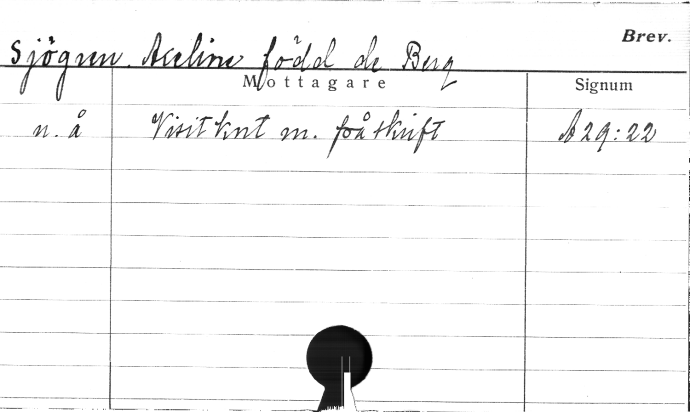 Brev.
Sjögren. Aceline född de Berg
Mottagare Signum
n. å Visitkort m. påskrift A 29:22